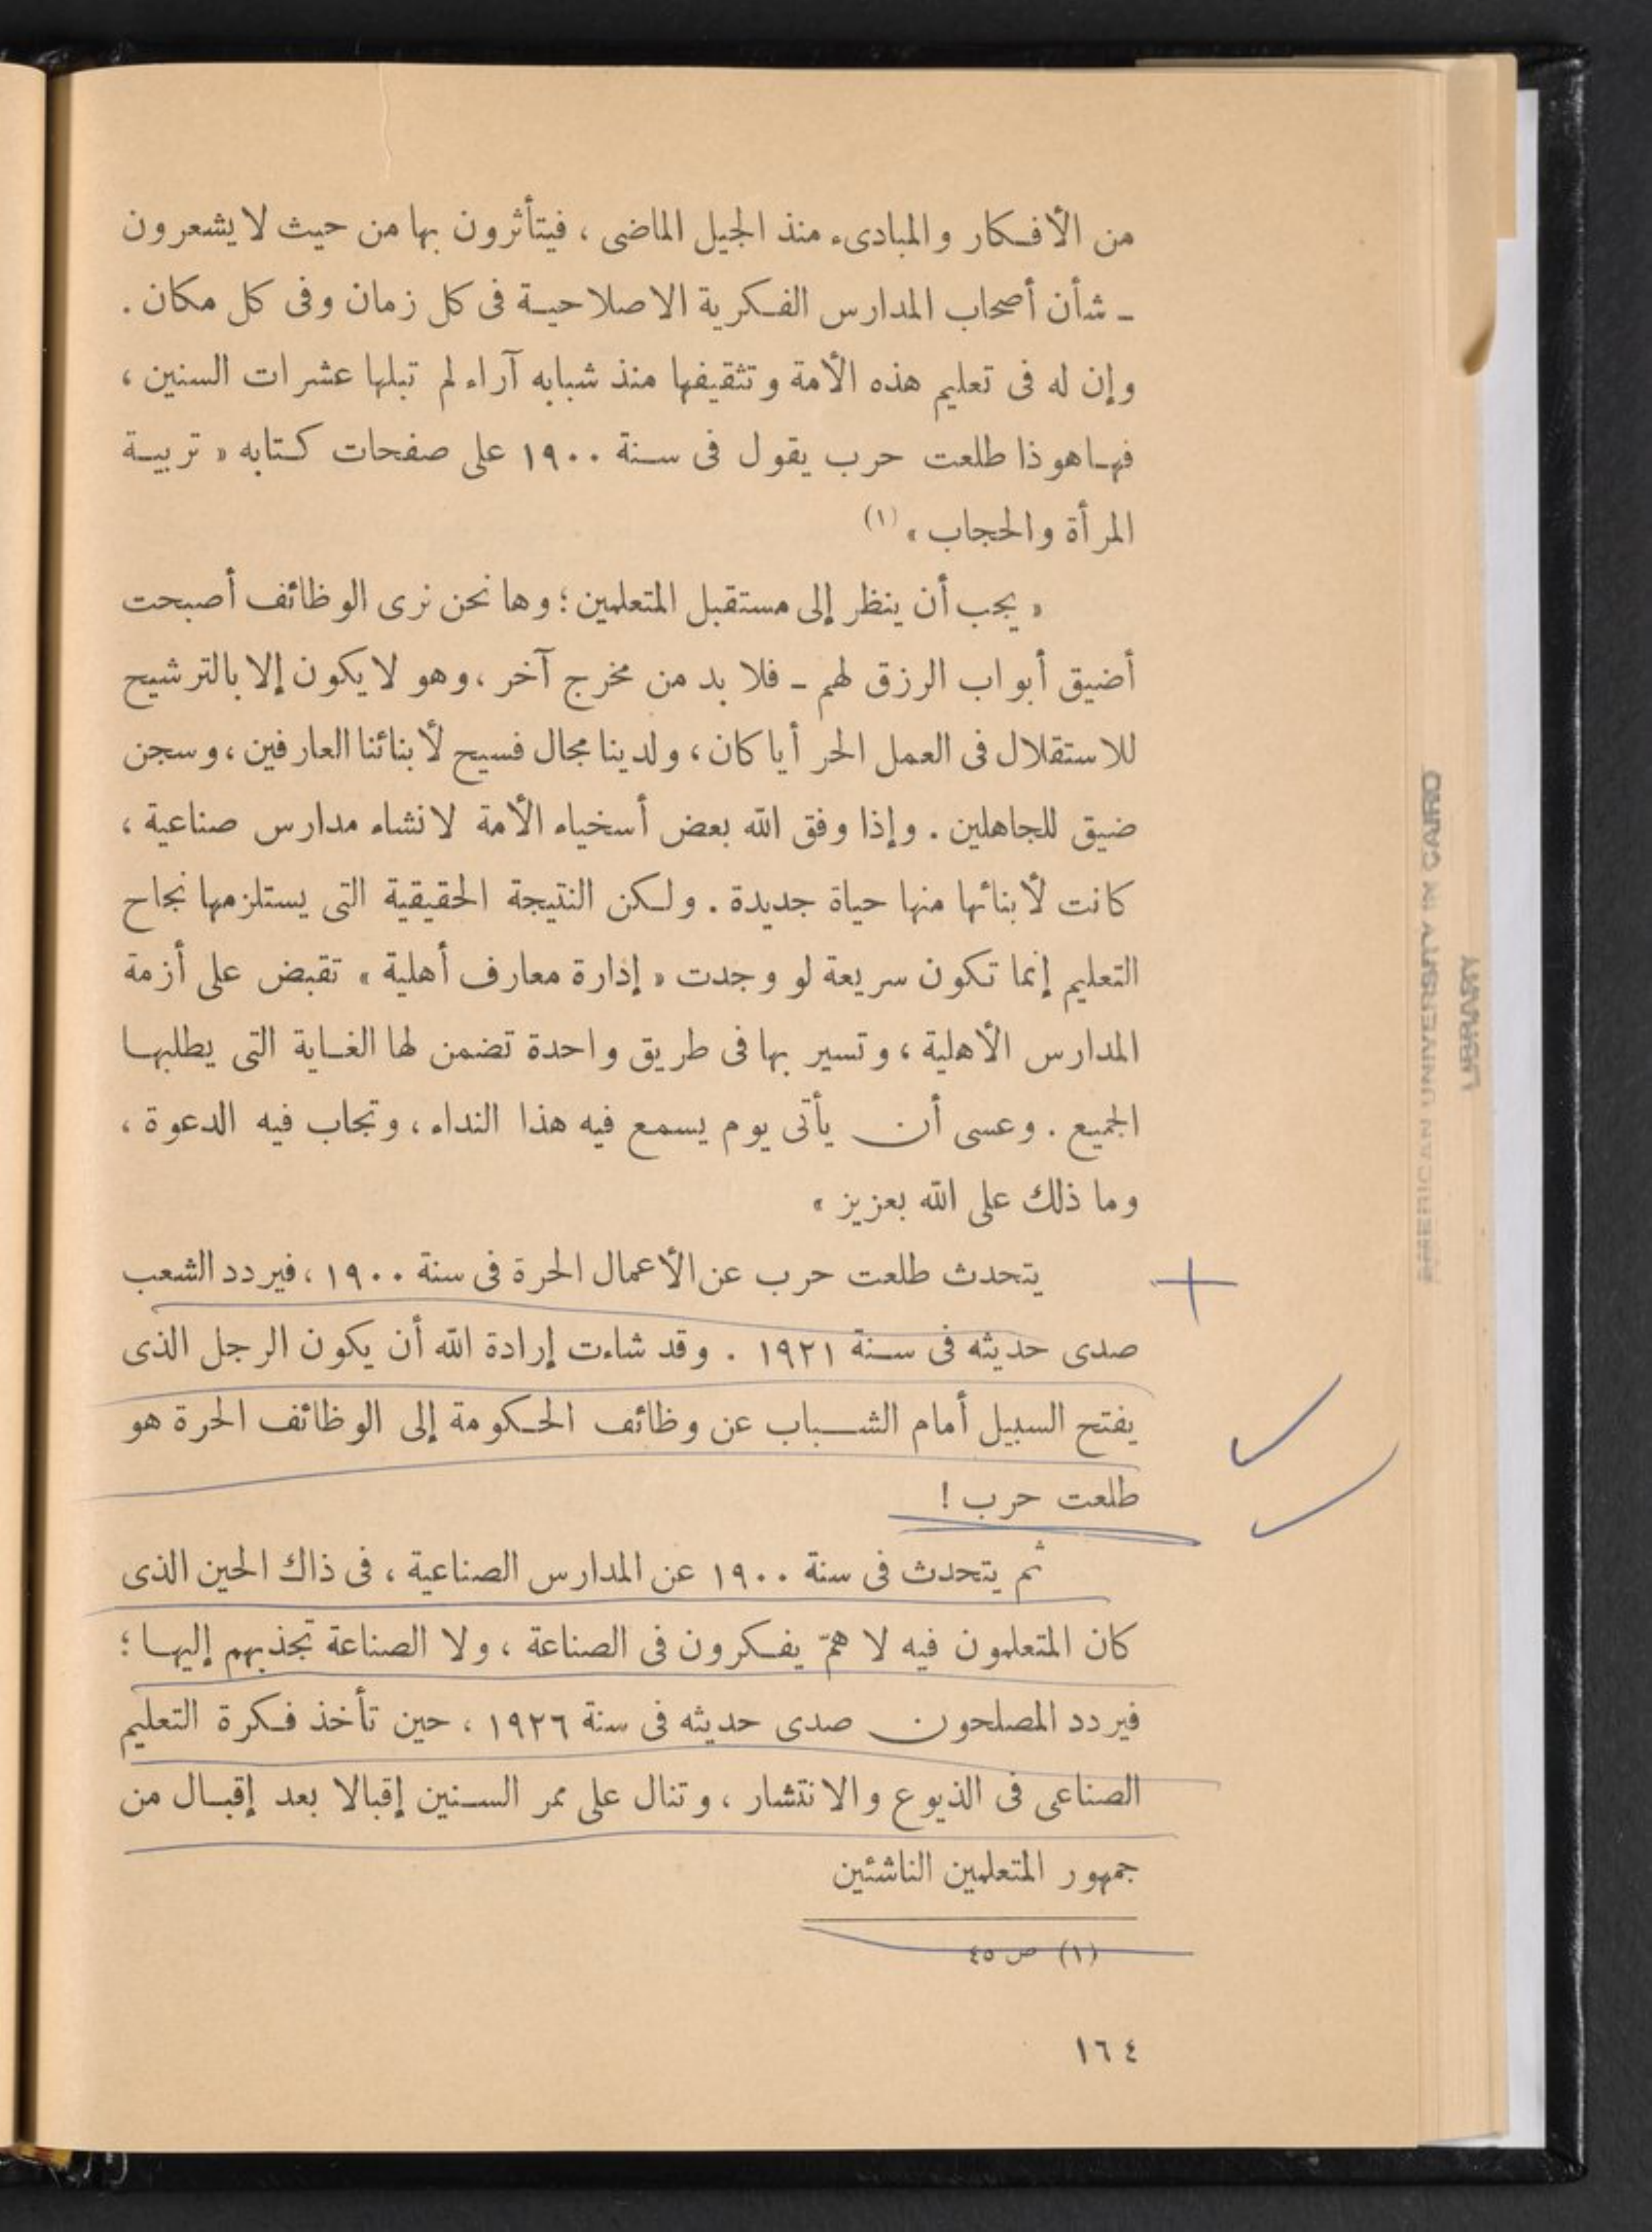 من الأفكار والمبادىء منذ الجيل الماضى ، فيتأثرون بها من حيث لا يشعرون
ـ شأن أصحاب المدارس الفكرية الاصلاحية فى كل زمان وفى كل مكان .
وإن له فى تعليم هذه الأمة وتثقيفها منذ شبابه آراء لم تبلها عشرات السنين ،
فهاهو ذا طلعت حرب يقول فى سنة ١٩٠٠ على صفحات كتابه « تربية
المرأة والحجاب » (١)
« يجب أن ينظر إلى مستقبل المتعلمين ؛ وها نحن نرى الوظائف أصبحت
أضيق أبواب الرزق لهم ـ فلا بد من مخرج آخر ، وهو لا يكون إلا بالترشيح
للاستقلال فى العمل الحر أيا كان ، ولدينا مجال فسيح لأبنائنا العارفين ، وسجن
ضيق للجاهلين . وإذا وفق الله بعض أسخياء الأمة لانشاء مدارس صناعية ،
كانت لأبنائها منها حياة جديدة . ولكن النتيجة الحقيقية التى يستلزمها نجاح
التعليم إنما تكون سريعة لو وجدت « إدارة معارف أهلية » تقبض على أزمة
المدارس الأهلية ، وتسير بها فى طريق واحدة تضمن لها الغاية التى يطلبها
الجميع . وعسى أن يأتى يوم يسمع فيه هذا النداء ، وتجاب فيه الدعوة ،
وما ذلك على الله بعزيز »
يتحدث طلعت حرب عن الأعمال الحرة فى سنة ١٩٠٠ ، فيردد الشعب
صدى حديثه فى سنة ١٩٢١ . وقد شاءت إرادة الله أن يكون الرجل الذى
يفتح السبيل أمام الشباب عن وظائف الحكومة إلى الوظائف الحرة هو
طلعت حرب !
ثم يتحدث فى سنة ١٩٠٠ عن المدارس الصناعية ، فى ذاك الحين الذى
كان المتعلمون فيه لا همّ يفكرون فى الصناعة ، ولا الصناعة تجذبهم إليها ؛
فيردد المصلحون صدى حديثه فى سنة ١٩٢٦ ، حين تأخذ فكرة التعليم
الصناعى فى الذيوع والانتشار ، وتنال على ممر السنين إقبالا بعد إقبال من
جمهور المتعلمين الناشئين
(١) ص ٤٥
١٦٤
AMERICAN UNIVERSITY IN CAIRO
LIBRARY